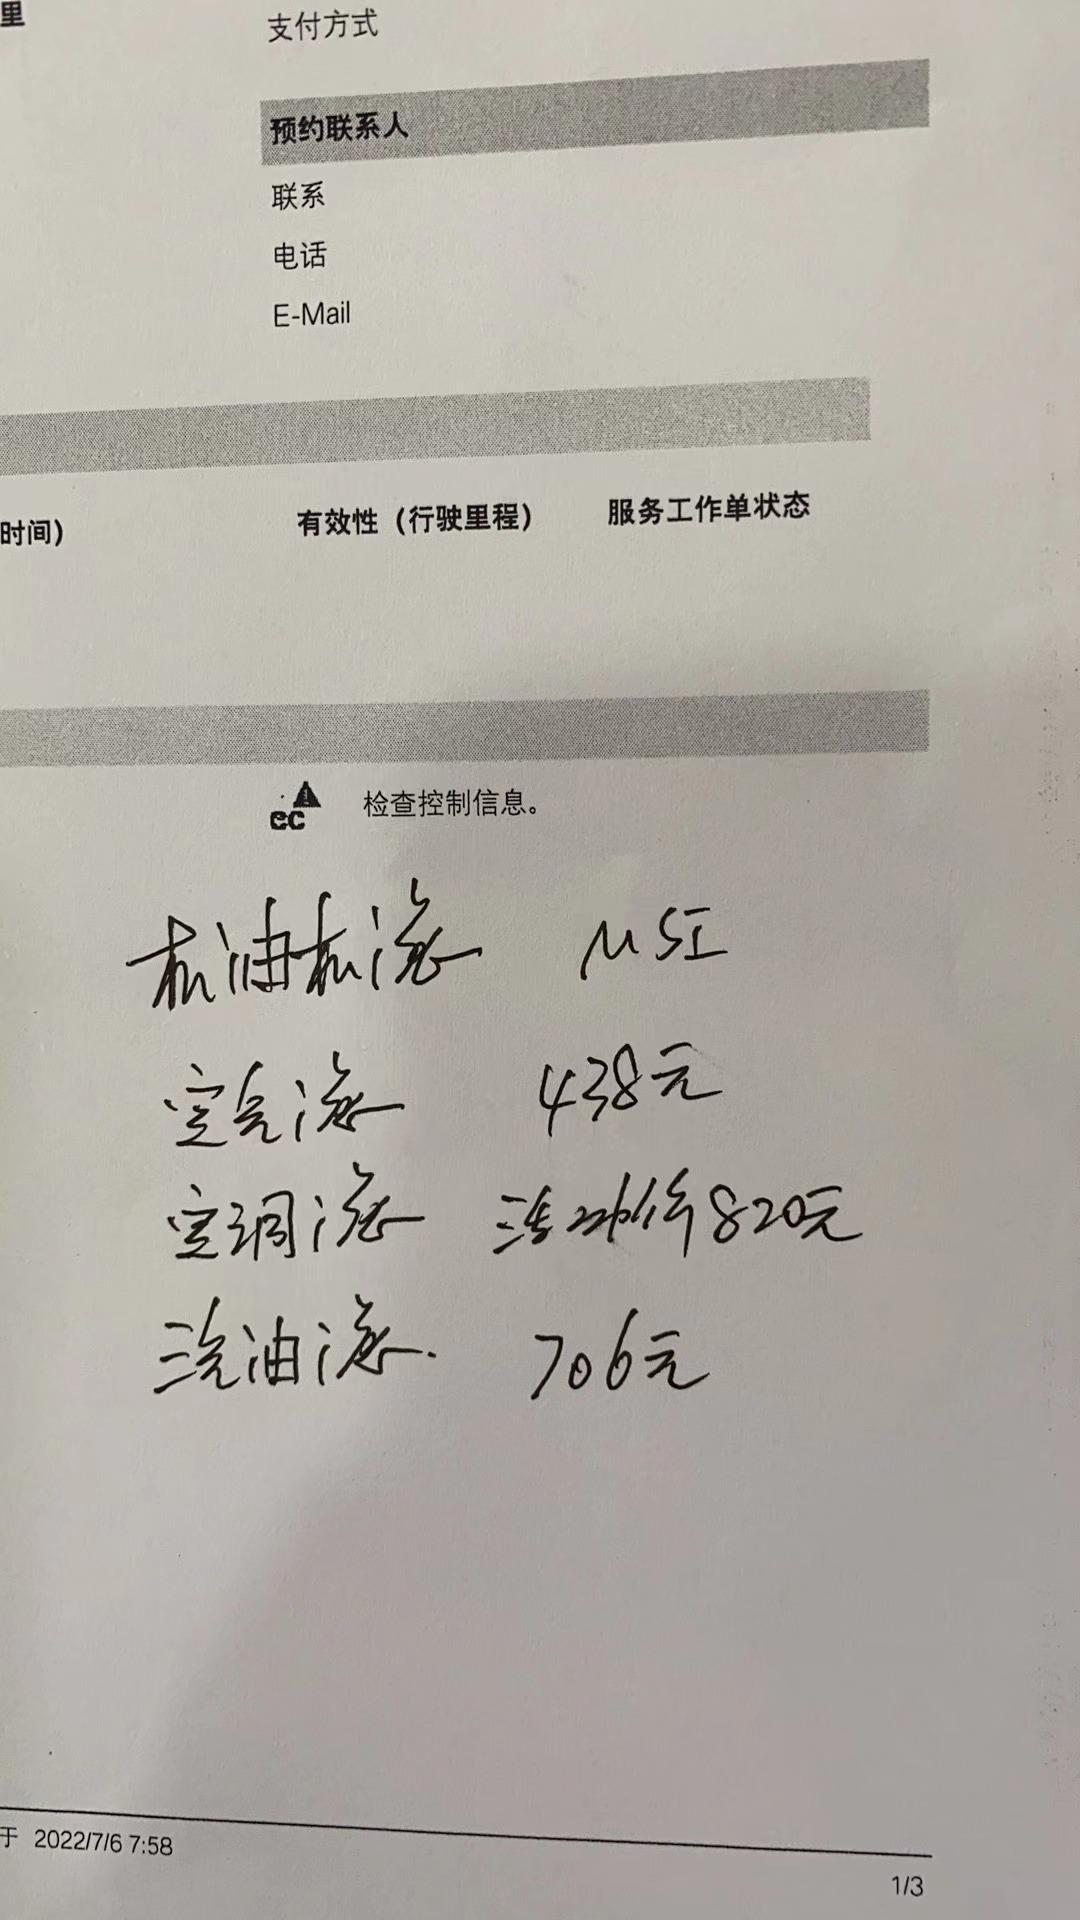 里
支付方式
预约联系人
联系
电话
E-Mail
时间)
有效性（行驶里程）
服务工作单状态
CC
检查控制信息。
机油机滤 MSI
空气滤 438元
空调滤 活动价820元
汽油滤. 706元
于 2022/7/6 7:58
1/3